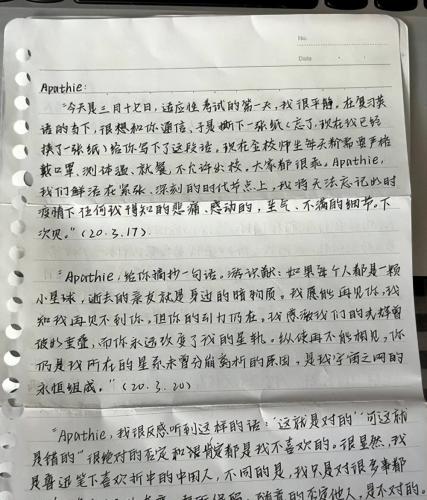 No.
Date
Apathie:
"今天是三月十七日,适应性考试的第一天,我很平静。在复习英
语的当下,很想和你通信、于是撕下一张纸(忘了,现在我已经
换了一张纸)给你写下了这段话。现在全校师生每天都需要严格
戴口罩、测体温、就餐,不允许出校。大家都很乖。Apathie,
我们鲜活在紧张、深刻的时代节点上,我将无法忘记此时
疫情下任何我得知的悲痛、感动的,生气、不满的细节。下
次见。"(20.3.17)
"Apathie,给你摘抄一句话。游识猷:如果每个人都是一颗
小星球,逝去的亲友就是身边的暗物质。我愿能再见你,我
知我再见不到你。但你的引力仍在。我感激我们的光锥曾
彼此重叠,而你永远改变了我的星轨。纵使再不能相见,你
仍是我所在的星系未曾分崩离析的原因,是我宇宙之网的
永恒组成。"(20.3.20)
"Apathie,我很反感听到这样的话:"这就是对的""可这就
是错的"很绝对的否定和肯定都是我不喜欢的。很显然,我
是鲁迅笔下喜欢折中的中国人,不同的是,我只是对很多事都
随意的否定他人,是不对的。